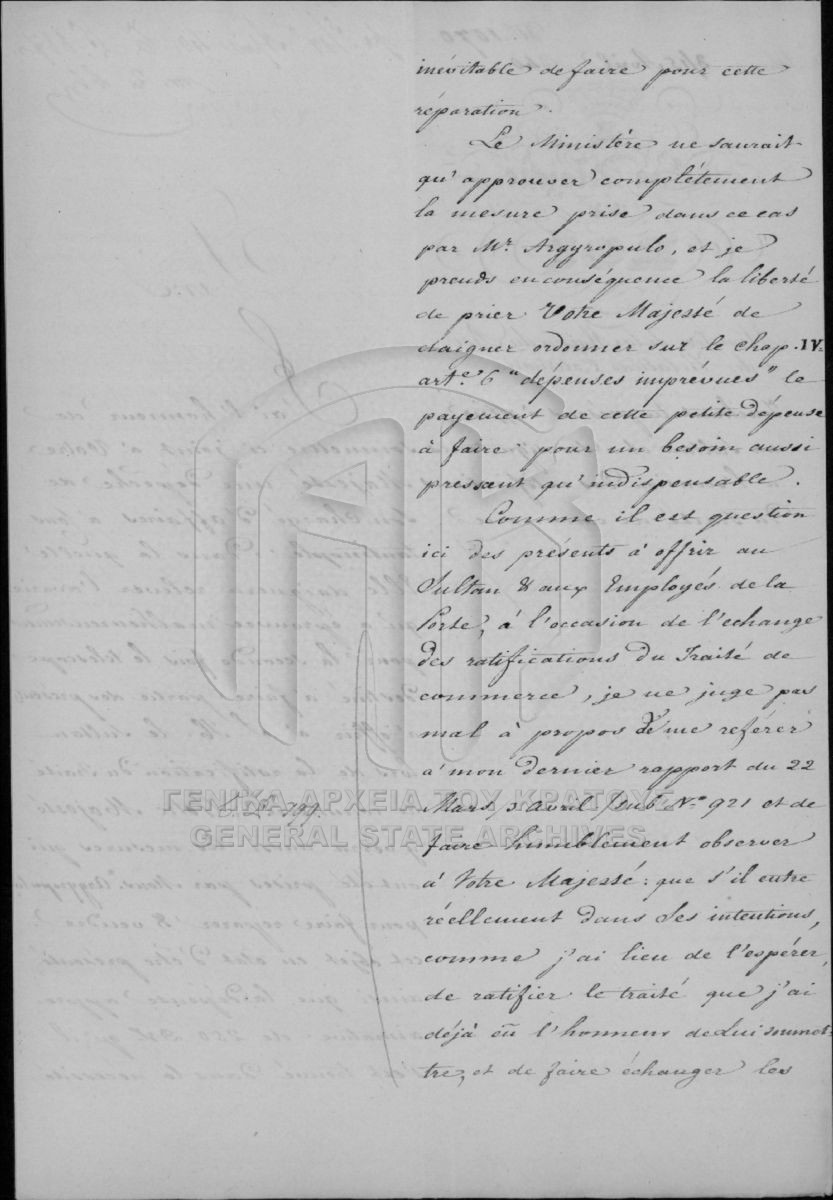 inévitable de faire pour cette
réparation.
Le Ministère ne saurait
qu'approuver complètement
la mesure prise dans ce cas
par Mr. Argyropulo, et je
prends en conséquence la liberté
de prier Votre Majesté de
daigner ordonner sur le Chap. IV.
art.e 6 "dépenses imprévues" le
payement de cette petite dépense
à faire pour un besoin aussi
pressant qu'indispensable.
Comme il est question
ici des présents à offrir au
Sultan & aux Employés de la
Porte, à l'occasion de l'echange
des ratifications du Traité de
commerce, je ne juge pas
mal à propos de me référer
à mon dernier rapport du 22
Mars/3 Avril /sub No. 921 et de
faire humblement observer
à Votre Majesté: que s'il entre
réellement dans Ses intentions,
comme j'ai lieu de l'espérer,
de ratifier le traité que j'ai
déjà eu l'honneur de Lui soumet-
tre, et de faire échanger les
ΓΕΝΙΚΑ ΑΡΧΕΙΑ ΤΟΥ ΚΡΑΤΟΥΣ
GENERAL STATE ARCHIVES